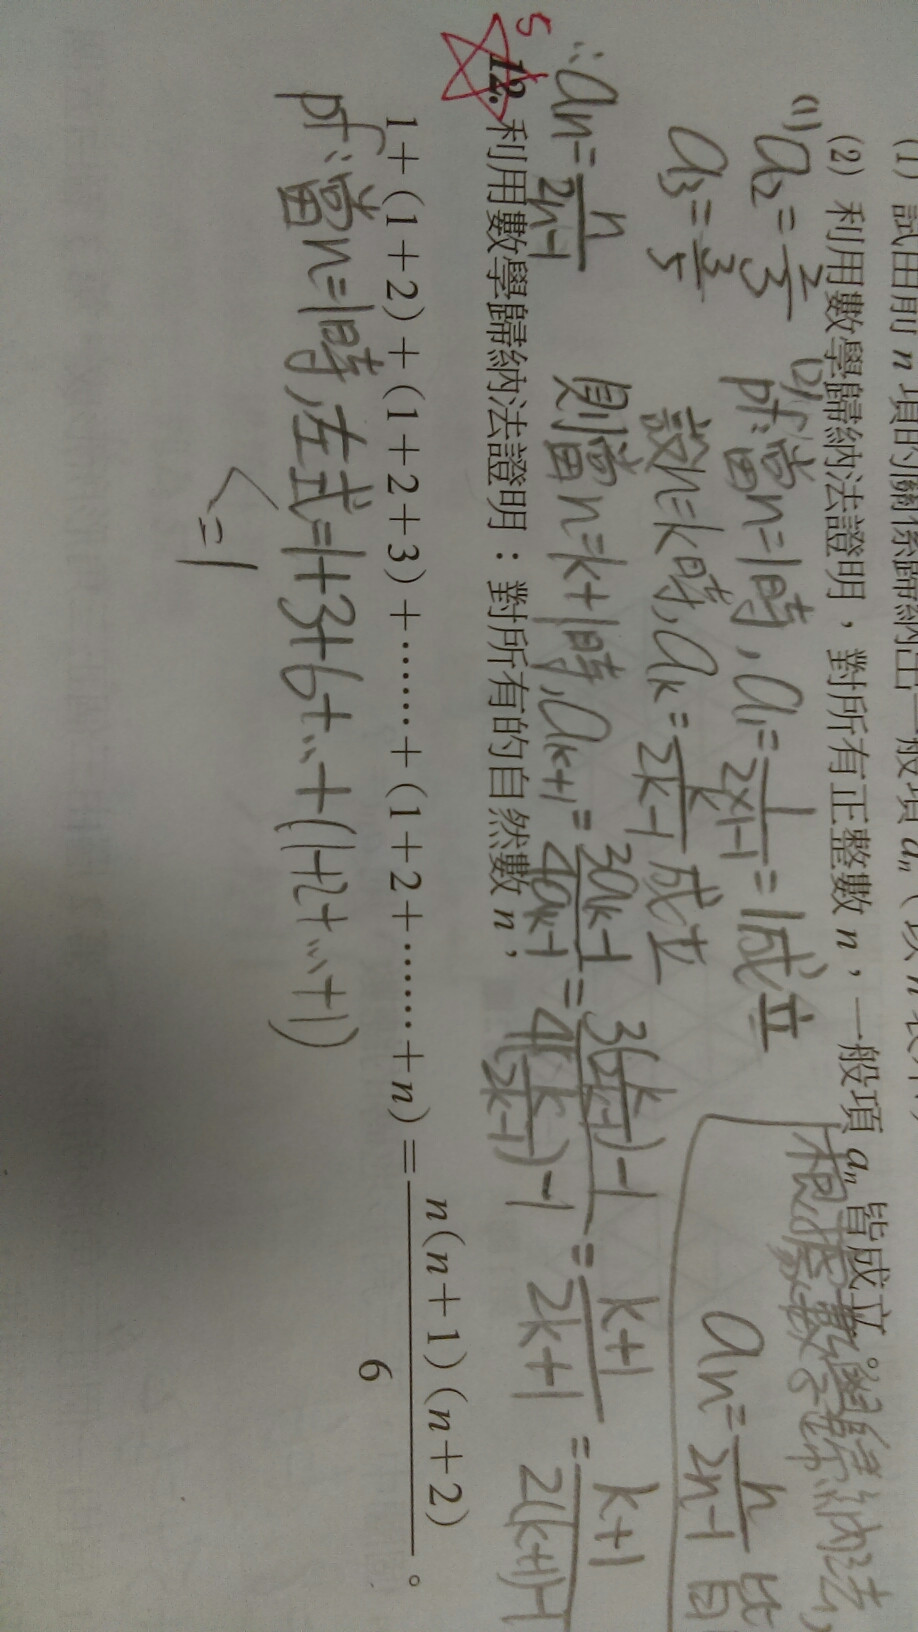 (1) 試由前 n 項的關係歸納出一般項 aₙ
(2) 利用數學歸納法證明，對所有正整數 n，一般項 aₙ 皆成立。
(1) a₂ = 2/3
a₃ = 3/5
∴ aₙ = n/(2n-1)
(2) pf: 當n=1時, a₁ = 1/(2×1-1) = 1成立
設n=k時, aₖ = k/(2k-1) 成立
則當n=k+1時, aₖ₊₁ = (3aₖ-1)/(4aₖ-1) = (3(k/(2k-1))-1)/(4(k/(2k-1))-1) = (k+1)/(2k+1) = (k+1)/(2(k+1)-1)
根據數學歸納法,
aₙ = n/(2n-1) 皆
5
12. 利用數學歸納法證明：對所有的自然數 n，
1+(1+2)+(1+2+3)+……+(1+2+……+n)= n(n+1)(n+2)/6 。
pf: 當n=1時, 左式=1+3+6+…+(1+2+…+1)
=1